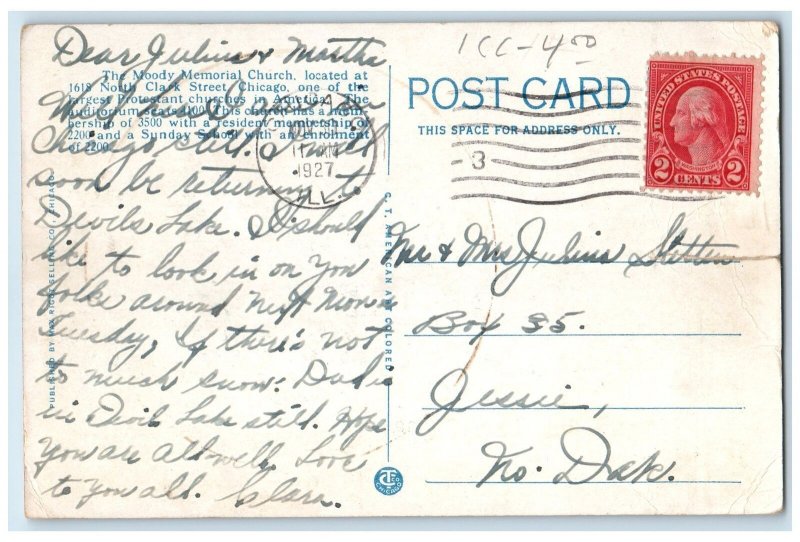 Dear Julius & Martha
The Moody Memorial Church, located at
1618 North Clark Street, Chicago, one of the
largest Protestant churches in America. The
auditorium seats 4000. This church has a mem-
bership of 3500 with a resident membership of
2200 and a Sunday School with an enrollment
of 2200.
Chicago
soon be returning to
Devils Lake. I should
like to look in on you
folks around next Mon or
Tuesday, If there's not
to much snow:
in Devil Lake still. Hope
you are all well. Love
to you all. Clara.
PUBLISHED BY MAX RIGOT SELLING CO., CHICAGO
C. T. AMERICAN ART COLORED
CHICAGO
1927
ILL.
3
1CC-4.00
POST CARD
THIS SPACE FOR ADDRESS ONLY.
UNITED STATES POSTAGE
WASHINGTON
2 CENTS 2
Mr & Mrs Julius Stetten
Box 35.
Jessie,
No. Dak.